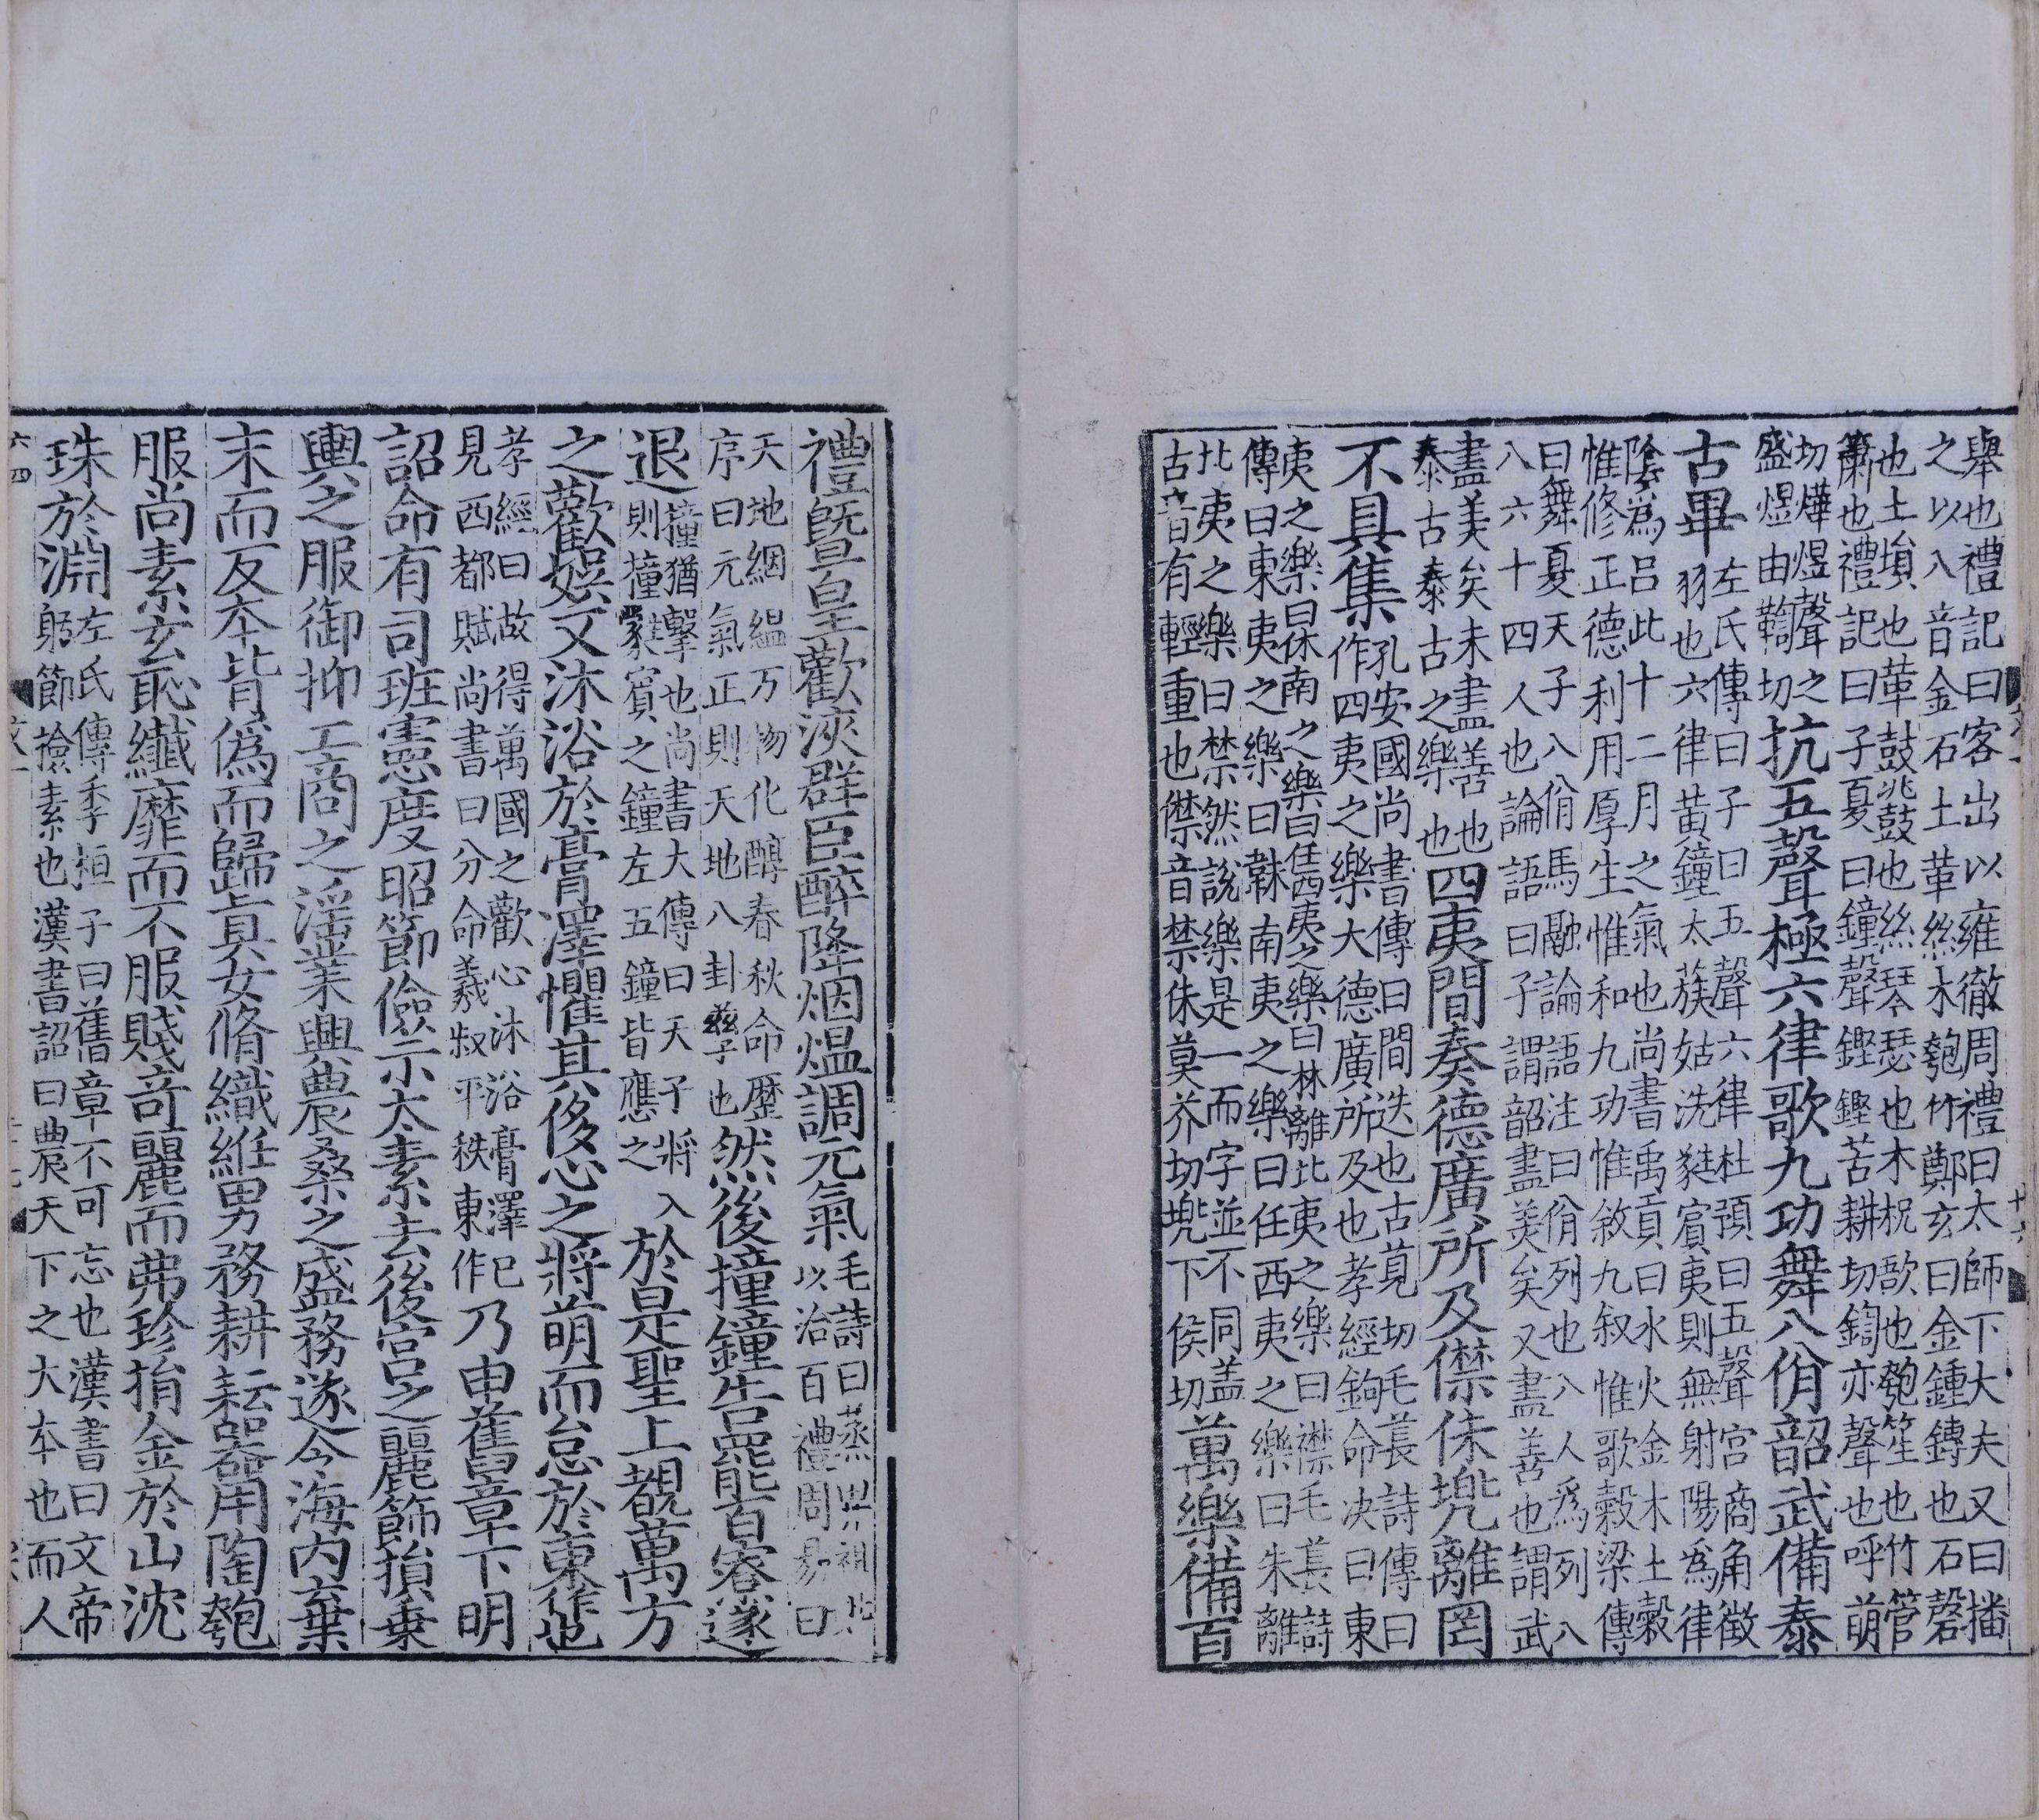 舉也禮記曰客出以雍徹周禮曰太師下大夫又曰播
之以八音金石土革絲木匏竹鄭玄曰金鍾鏄也石磬
也土塤也革鼓鼗鼓也絲琴瑟也木柷敔也匏笙也竹管
簫也禮記曰子夏曰鐘聲鏗鏗苦耕切鎗亦聲也呼萌
切燁煜聲之
盛煜由鞫切抗五聲極六律歌九功舞八佾韶武備泰
古畢左氏傳曰子曰五聲六律杜預曰五聲宮商角徵
羽也六律黃鐘太蔟姑洗蕤賓夷則無射陽爲律
陰爲呂此十二月之氣也尚書禹貢曰水火金木土穀
惟修正德利用厚生惟和九功惟敘九叙惟歌穀梁傳
曰舞夏天子八佾馬融論語注曰佾列也八人爲列八
八六十四人也論語曰子謂韶盡美矣又盡善也謂武
盡美矣未盡善也
泰古泰古之樂也四夷間奏德廣所及僸佅兠離罔
不具集孔安國尚書傳曰間迭也古莧切毛萇詩傳曰
作四夷之樂大德廣所及也孝經鉤命决曰東
夷之樂曰佅南之樂曰任西夷之樂曰林離北夷之樂曰襟毛萇詩
傳曰東夷之樂曰韎南夷之樂曰任西夷之樂曰朱離
北夷之樂曰禁然說樂是一而字並不同盖
古音有輕重也僸音禁佅莫芥切兠下侯切萬樂備百
禮曁皇歡浹群臣醉降烟煴調元氣毛詩曰蒸畀祖妣
以洽百禮周易曰
天地絪縕万物化醇春秋命歷
序曰元氣正則天地八卦孳也然後撞鐘告罷百寮遂
退撞猶擊也尚書大傳曰天子將入
則撞蕤賓之鐘左五鐘皆應之於是聖上覩萬方
之歡娛又沐浴於膏澤懼其侈心之將萌而怠於東作也
孝經曰故得萬國之歡心沐浴膏澤已
見西都賦尚書曰分命羲叔平秩東作乃申舊章下明
詔命有司班憲度昭節儉示太素去後宮之麗飾損乗
輿之服御抑工商之淫業興農桑之盛務遂令海内棄
末而反夲背僞而歸真女脩織絍男務耕耘器用陶匏
服尚素玄恥纎靡而不服賤竒麗而弗珍捐金於山沈
珠於淵左氏傳季桓子曰舊章不可忘也漢書曰文帝
躬節儉素也漢書詔曰農天下之大夲也而人